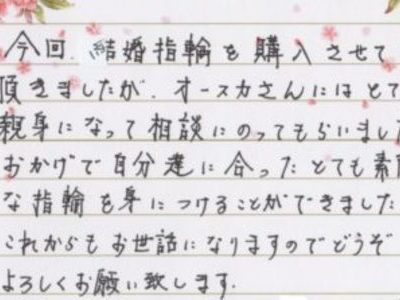 今回、結婚指輪を購入させて
頂きましたが、オースカさんにはとて
親身になって相談にのってもらいまし
おかげで自分達に合ったとても素
な指輪を身につけることができました
これからもお世話になりますのでどうぞ
よろしくお願い致します.